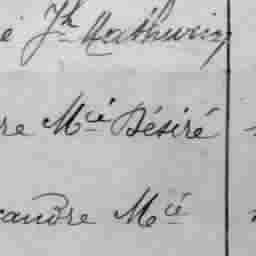 é Jh Mathurin
re Mcié Désiré
candre Mcié